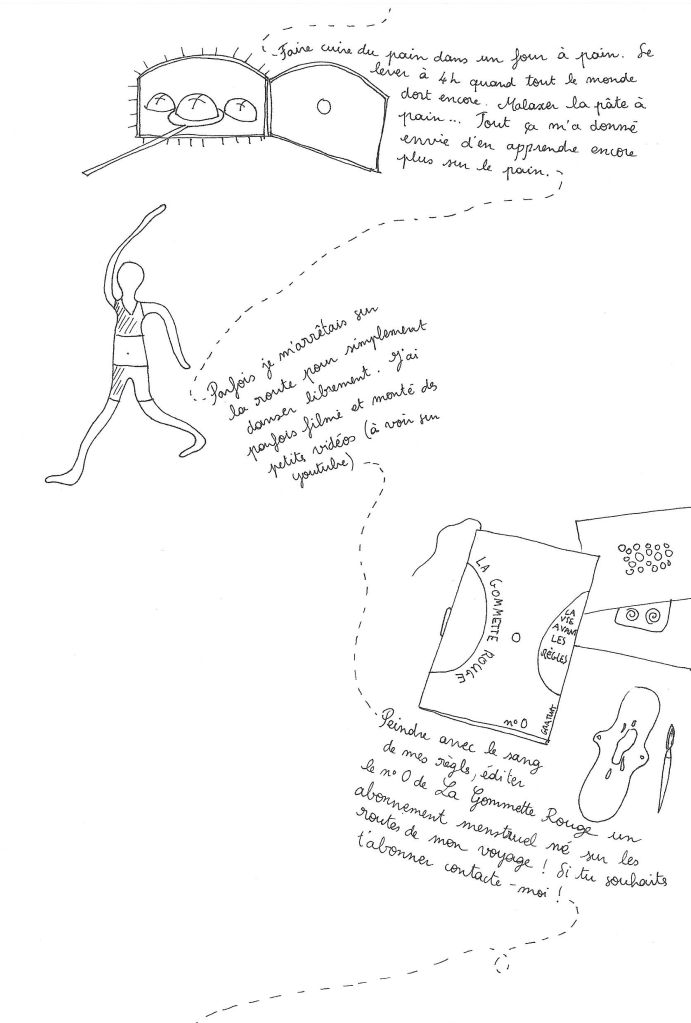 Faire cuire du pain dans un four à pain. Se
lever à 4h quand tout le monde
dort encore. Malaxer la pâte à
pain... Tout ça m'a donné
envie d'en apprendre encore
plus sur le pain.
Parfois je m'arrêtais sur
la route pour simplement
danser librement. J'ai
parfois filmé et monté des
petites vidéos (à voir sur
youtube)
LA GOMMETTE ROUGE
LA
VIE
AVANT
LES
RÈGLES
n°0
GRATUIT
Peindre avec le sang
de mes règles, éditer
le n°0 de La Gommette Rouge un
abonnement menstruel né sur les
routes de mon voyage ! Si tu souhaites
t'abonner contacte-moi !